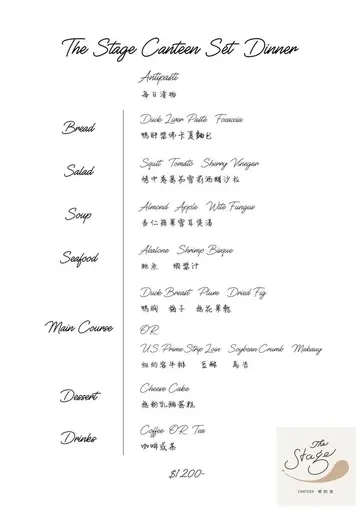 The Stage Canteen Set Dinner
Antipasti
每日漬物
Bread
Duck Liver Paste Focaccia
鴨肝醬佛卡夏麵包
Salad
Squit Tomato Sherry Vinegar
透中卷蕃茄雪莉油醋沙拉
Soup
Almond Apple Wite Fungue
杏仁蘋果雪耳煲湯
Seafood
Abalone Shrimp Bisque
鮑魚 蝦醬汁
Duck Breast Plum Dried Fig
鴨胸 梅子 無花果乾
Main Course
OR
U.S. Prime Strip Loin Soybean Crumb Makauy
紐約客牛排 豆酥 馬告
Dessert
Cheese Cake
無粉乳酪蛋糕
Drinks
Coffee OR Tea
咖啡或茶
$1,200-
The
Stage
CANTEEN 學餐室